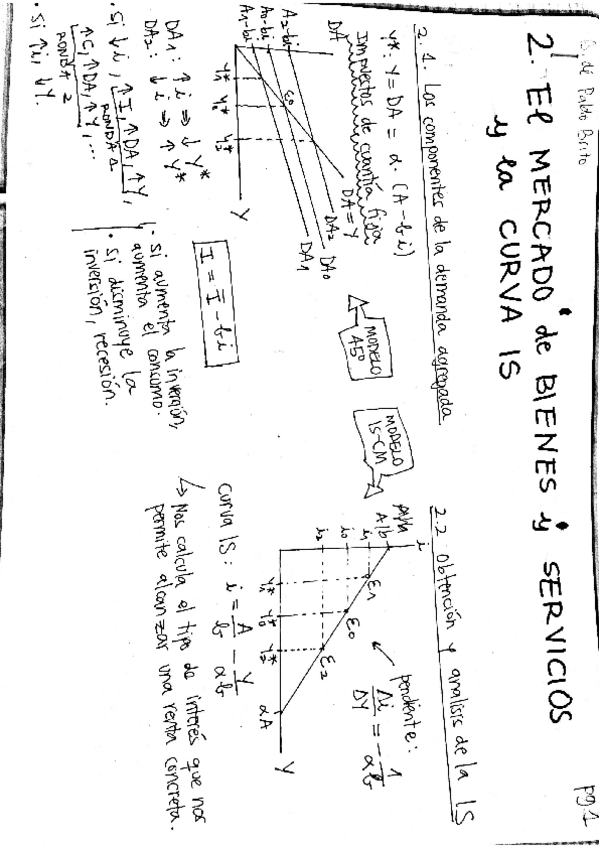 G. de Pablo Brito
pg.1
2. El MERCADO de BIENES y SERVICIOS
y la CURVA IS
2.1. Los componentes de la demanda agregada
Y*: Y = DA = α · (A - b i)
Impuestos de cuantía fija
DA
DA = Y
DA₂
DA₀
DA₁
A₂-bi
A₀-bi
A₁-bi
E₀
Y₁*
Y₀*
Y₂*
Y
DA₁: ↑i ⇒ ↓Y*
DA₂: ↓i ⇒ ↑Y*
· Si ↓i, ↑I, ↑DA, ↑Y,
RONDA 1
↑C, ↑DA, ↑Y, ...
RONDA 2
· Si ↑i, ↓Y.
I = Ī - b i
· Si aumenta la inversión,
aumenta el consumo.
· Si disminuye la
inversión, recesión.
MODELO
45º
MODELO
IS-CM
2.2 Obtención y analisis de la IS
i
A/b
i₁
i₀
i₂
E₁
E₀
E₂
Y₁*
Y₀*
Y₂*
αA
Y
pendiente:
Δi/ΔY = - 1/αb
Curva IS: i = A/b - Y/αb
↳ Nos calcula el tipo de interés que nos
permite alcanzar una renta concreta.